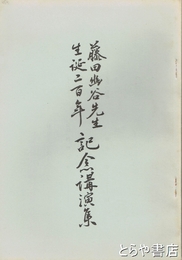 藤田幽谷先生
生誕二百年
記念講演集
とらや書店